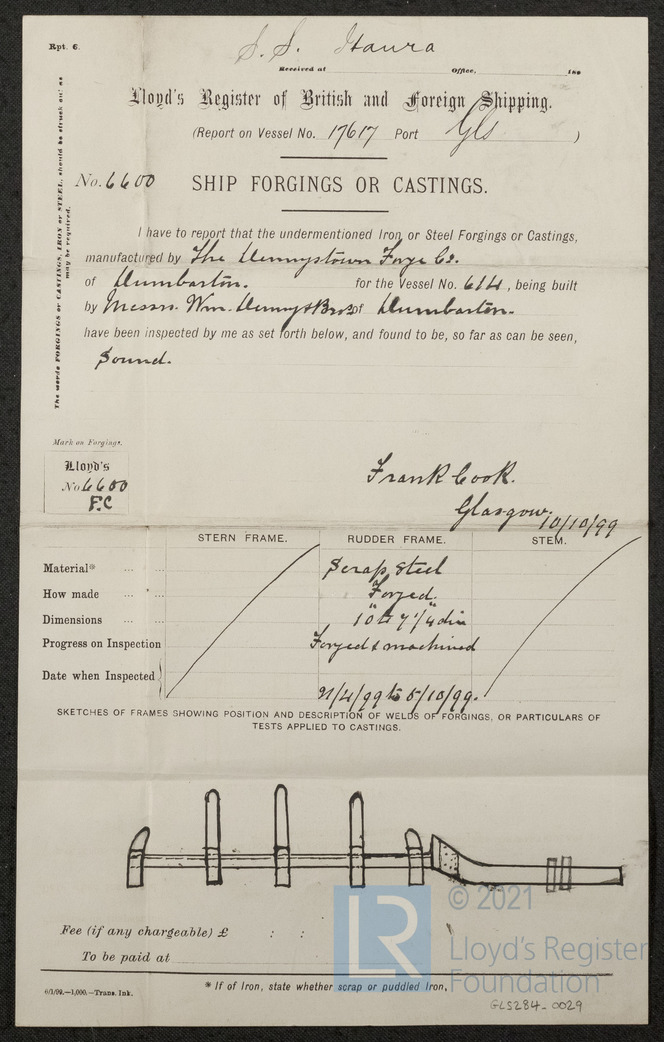 Rpt. 6.
S.S. Itaura
Received at Office, 189
Lloyd's Register of British and Foreign Shipping.
(Report on Vessel No. 17617 Port Gls )
No. 6600 SHIP FORGINGS OR CASTINGS.
The words FORGINGS or CASTINGS, IRON or STEEL, should be struck out as
may be required.
I have to report that the undermentioned Iron, or Steel Forgings or Castings,
manufactured by The Dennystown Forge Co.
of Dumbarton. for the Vessel No. 614, being built
by Messrs. Wm. Denny & Bros of Dumbarton.
have been inspected by me as set forth below, and found to be, so far as can be seen,
Sound.
Mark on Forgings.
Lloyd's
No 6600
F.C
Frank Cook.
Glasgow. 10/10/99
STERN FRAME. RUDDER FRAME. STEM.
Material* ... ... Scrap Steel
How made ... ... Forged.
Dimensions ... ... 10" to 7 1/4" dia
Progress on Inspection Forged & machined
Date when Inspected /4/99 to 5/10/99.
SKETCHES OF FRAMES SHOWING POSITION AND DESCRIPTION OF WELDS OF FORGINGS, OR PARTICULARS OF
TESTS APPLIED TO CASTINGS.
Fee (if any chargeable) £ : :
To be paid at
* If of Iron, state whether scrap or puddled Iron,
6/1/99.—1,000.—Trans. Ink.
LR
© 2021
Lloyd's Register
Foundation
GLS284-0029